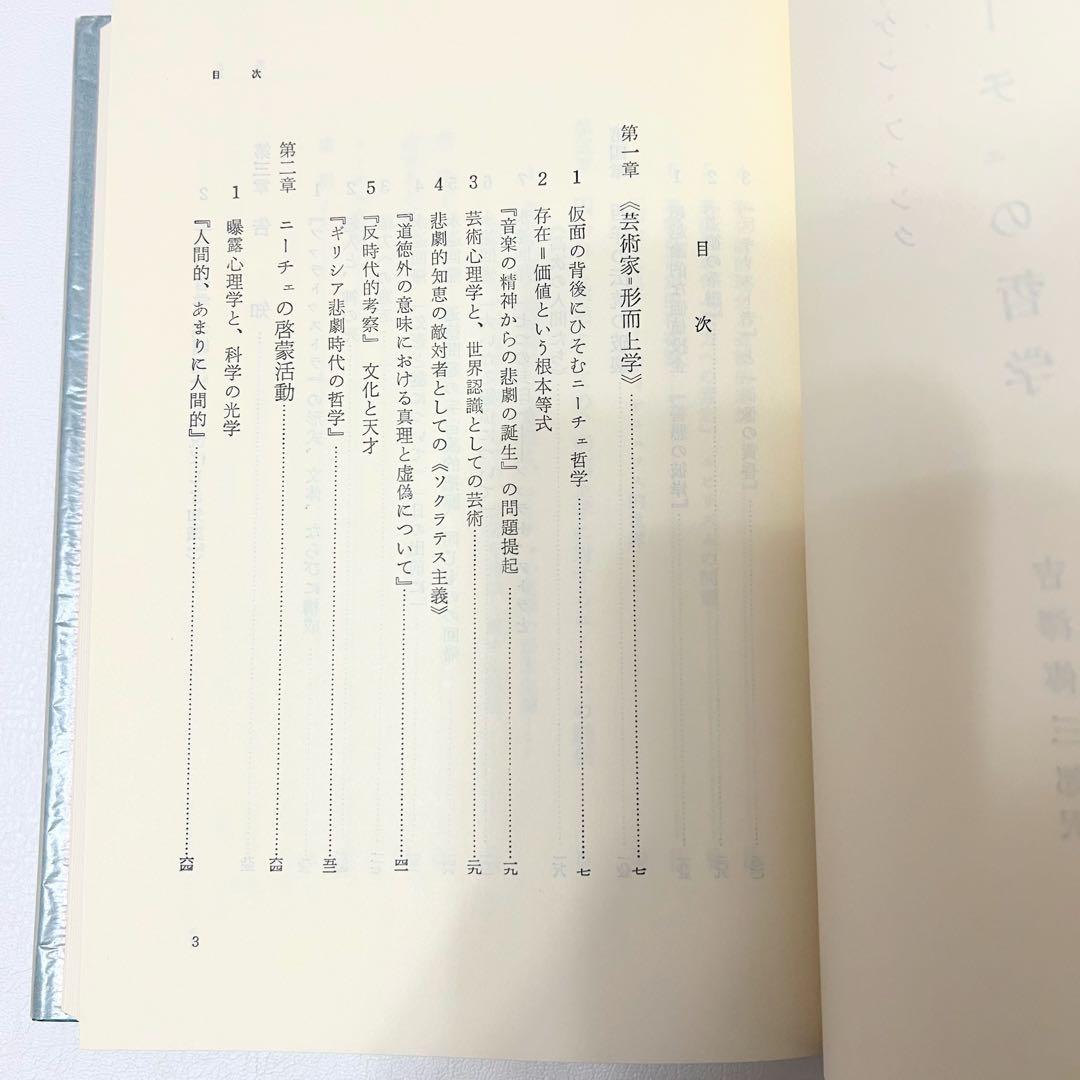 ーチェの哲学
ゲン・フィンク
吉澤傳三郎訳
目次
目次
第一章 《芸術家＝形而上学》……七
1 仮面の背後にひそむニーチェ哲学……七
2 存在＝価値という根本等式
『音楽の精神からの悲劇の誕生』の問題提起……一九
3 芸術心理学と、世界認識としての芸術……二九
4 悲劇的知恵の敵対者としての《ソクラテス主義》
『道徳外の意味における真理と虚偽について』……四一
5 『反時代的考察』 文化と天才
『ギリシア悲劇時代の哲学』……五二
第二章 ニーチェの啓蒙活動……六四
1 曝露心理学と、科学の光学
2 『人間的、あまりに人間的』……六四
3